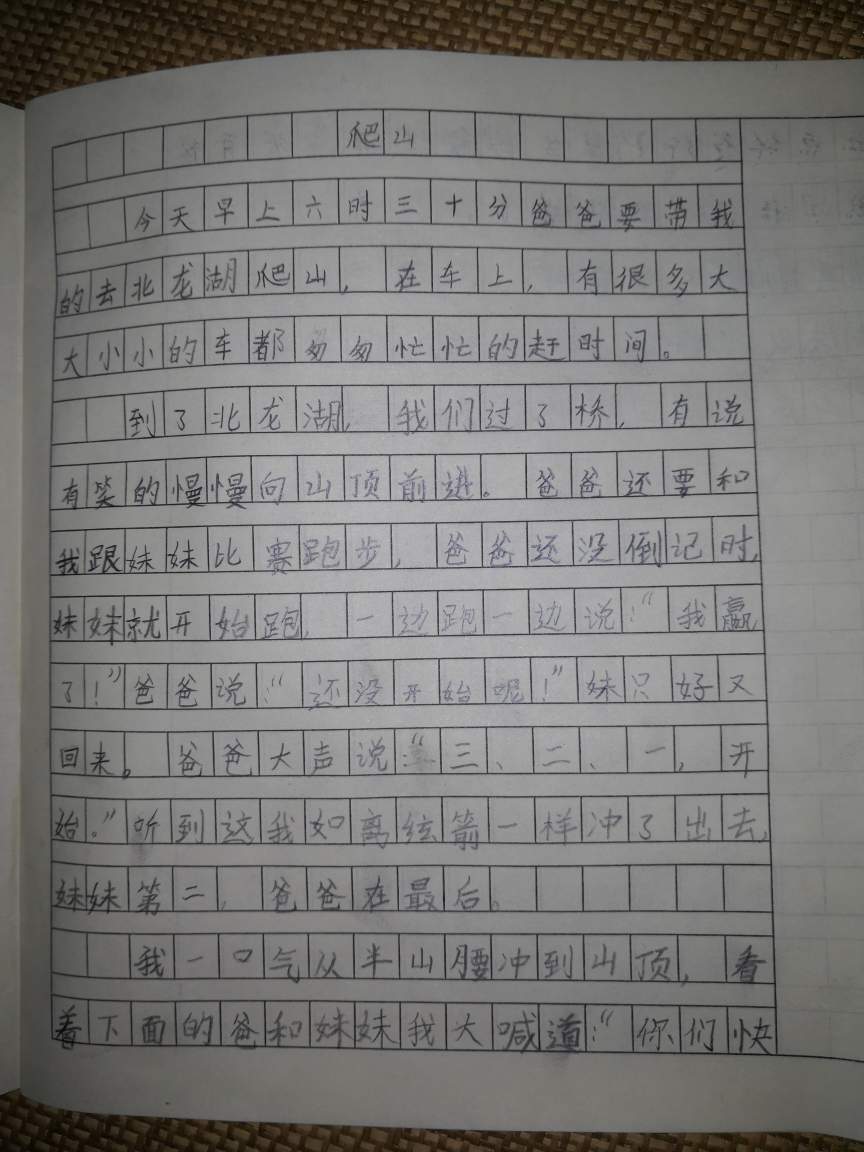 爬山
今天早上六时三十分爸爸要带我
的去北龙湖爬山，在车上，有很多大
大小小的车都匆匆忙忙的赶时间。
到了北龙湖，我们过了桥，有说
有笑的慢慢向山顶前进。爸爸还要和
我跟妹妹比赛跑步，爸爸还没倒记时，
妹妹就开始跑，一边跑一边说：“我赢
了！”爸爸说：“还没开始呢！”妹只好又
回来。爸爸大声说：“三、二、一，开
始。”听到这我如离弦箭一样冲了出去，
妹妹第二，爸爸在最后。
我一口气从半山腰冲到山顶，看
着下面的爸和妹妹我大喊道：“你们快